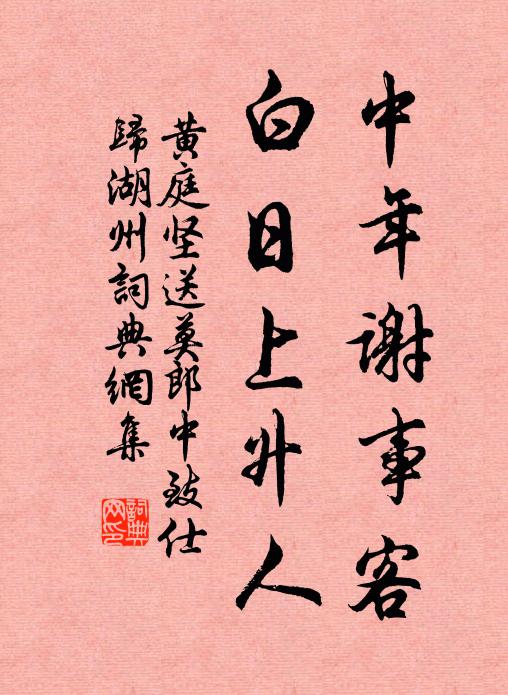 中年谢事客
白日上升人
黄庭坚送莫郎中致仕
歸湖州詞典網集
詞典网印